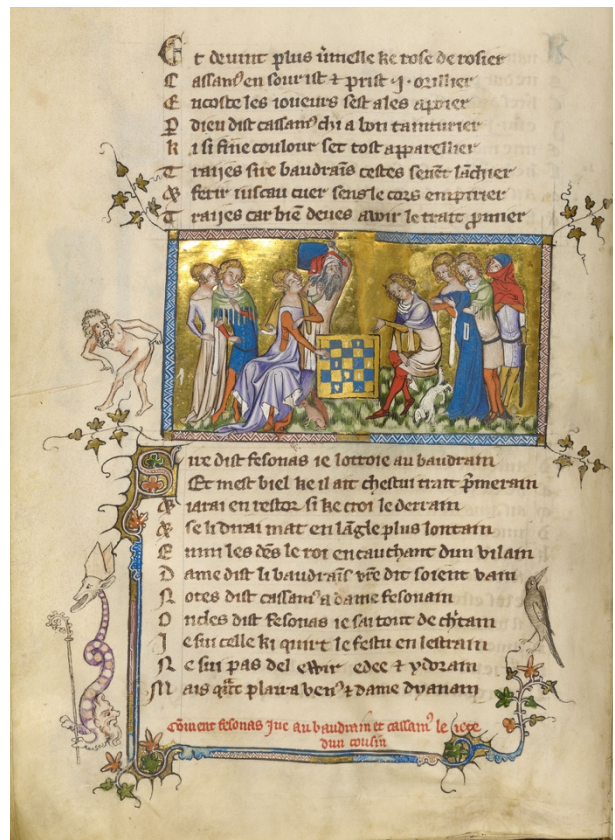 Et devint plus v̾melle ke rose de rosier
Cassan᷒ en sourist ⁊ prist ·i· orillier
Encoste les ioueurs sest ales apoier
P dieu dist cassan᷒ chi a bon tainturier
ki si fine coulour set tost apparellier
Traijes sire baudraīs cestes sevēt lāchier
& ferir iuscau cuer sens le cors empirier
Traijes car biē deves avoir le trait p̾mier
Sire dist fesonas ie lottoie au baudrain
Et mest biel ke il ait chestui trait p̄merain
& iarai en restor si ke croi le derrain
& se li dirai mat en lāgle plus lontain
Enmi les dēs le roi en cauchant dun vilain
Dame dist li baudraīs vr̄e dit soient vain
Notes dist cassan᷒ a dame fesonain
Oncles dist fesonas ie sai tout de ch̄tain
Je sui celle ki quirt le festu en lestrain
Ne sui pas del edee ⁊ ydorain
Mais qāt plaira ven᷒ ⁊ dame dyanain
Cōment fesonas Jue au baudrain et cassan᷒ le
dun cousin